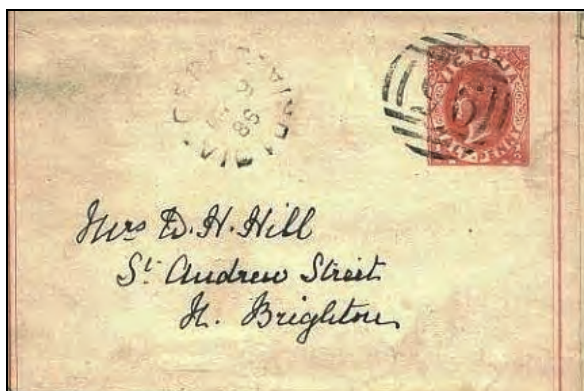 VICTORIA
HALF-PENNY
Mrs D. H. Hill
St. Andrew Street
N. Brighton